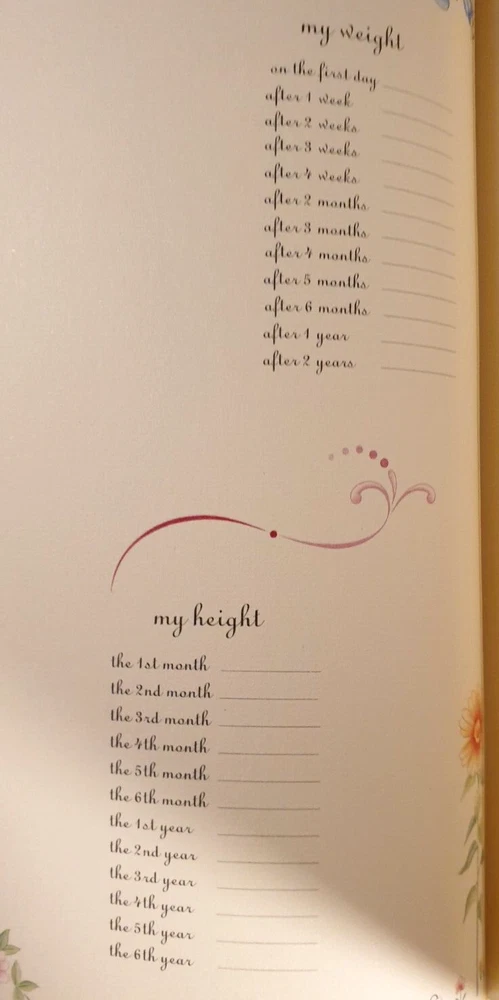 my weight
on the first day
after 1 week
after 2 weeks
after 3 weeks
after 4 weeks
after 2 months
after 3 months
after 4 months
after 5 months
after 6 months
after 1 year
after 2 years
my height
the 1st month
the 2nd month
the 3rd month
the 4th month
the 5th month
the 6th month
the 1st year
the 2nd year
the 3rd year
the 4th year
the 5th year
the 6th year